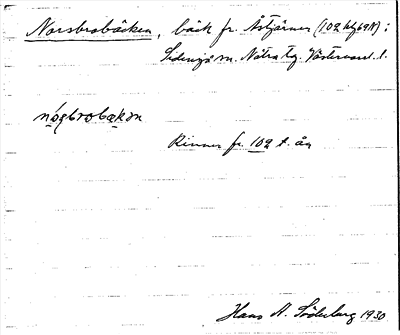 Norsbrobäcken, bäck fr. Åstjärnen (102 hfg69N) i
Sidensjö sn. Nätra tg. Västernorrl. l.
Rinner fr. 102 t. ån
Hans A. Söderberg 1930